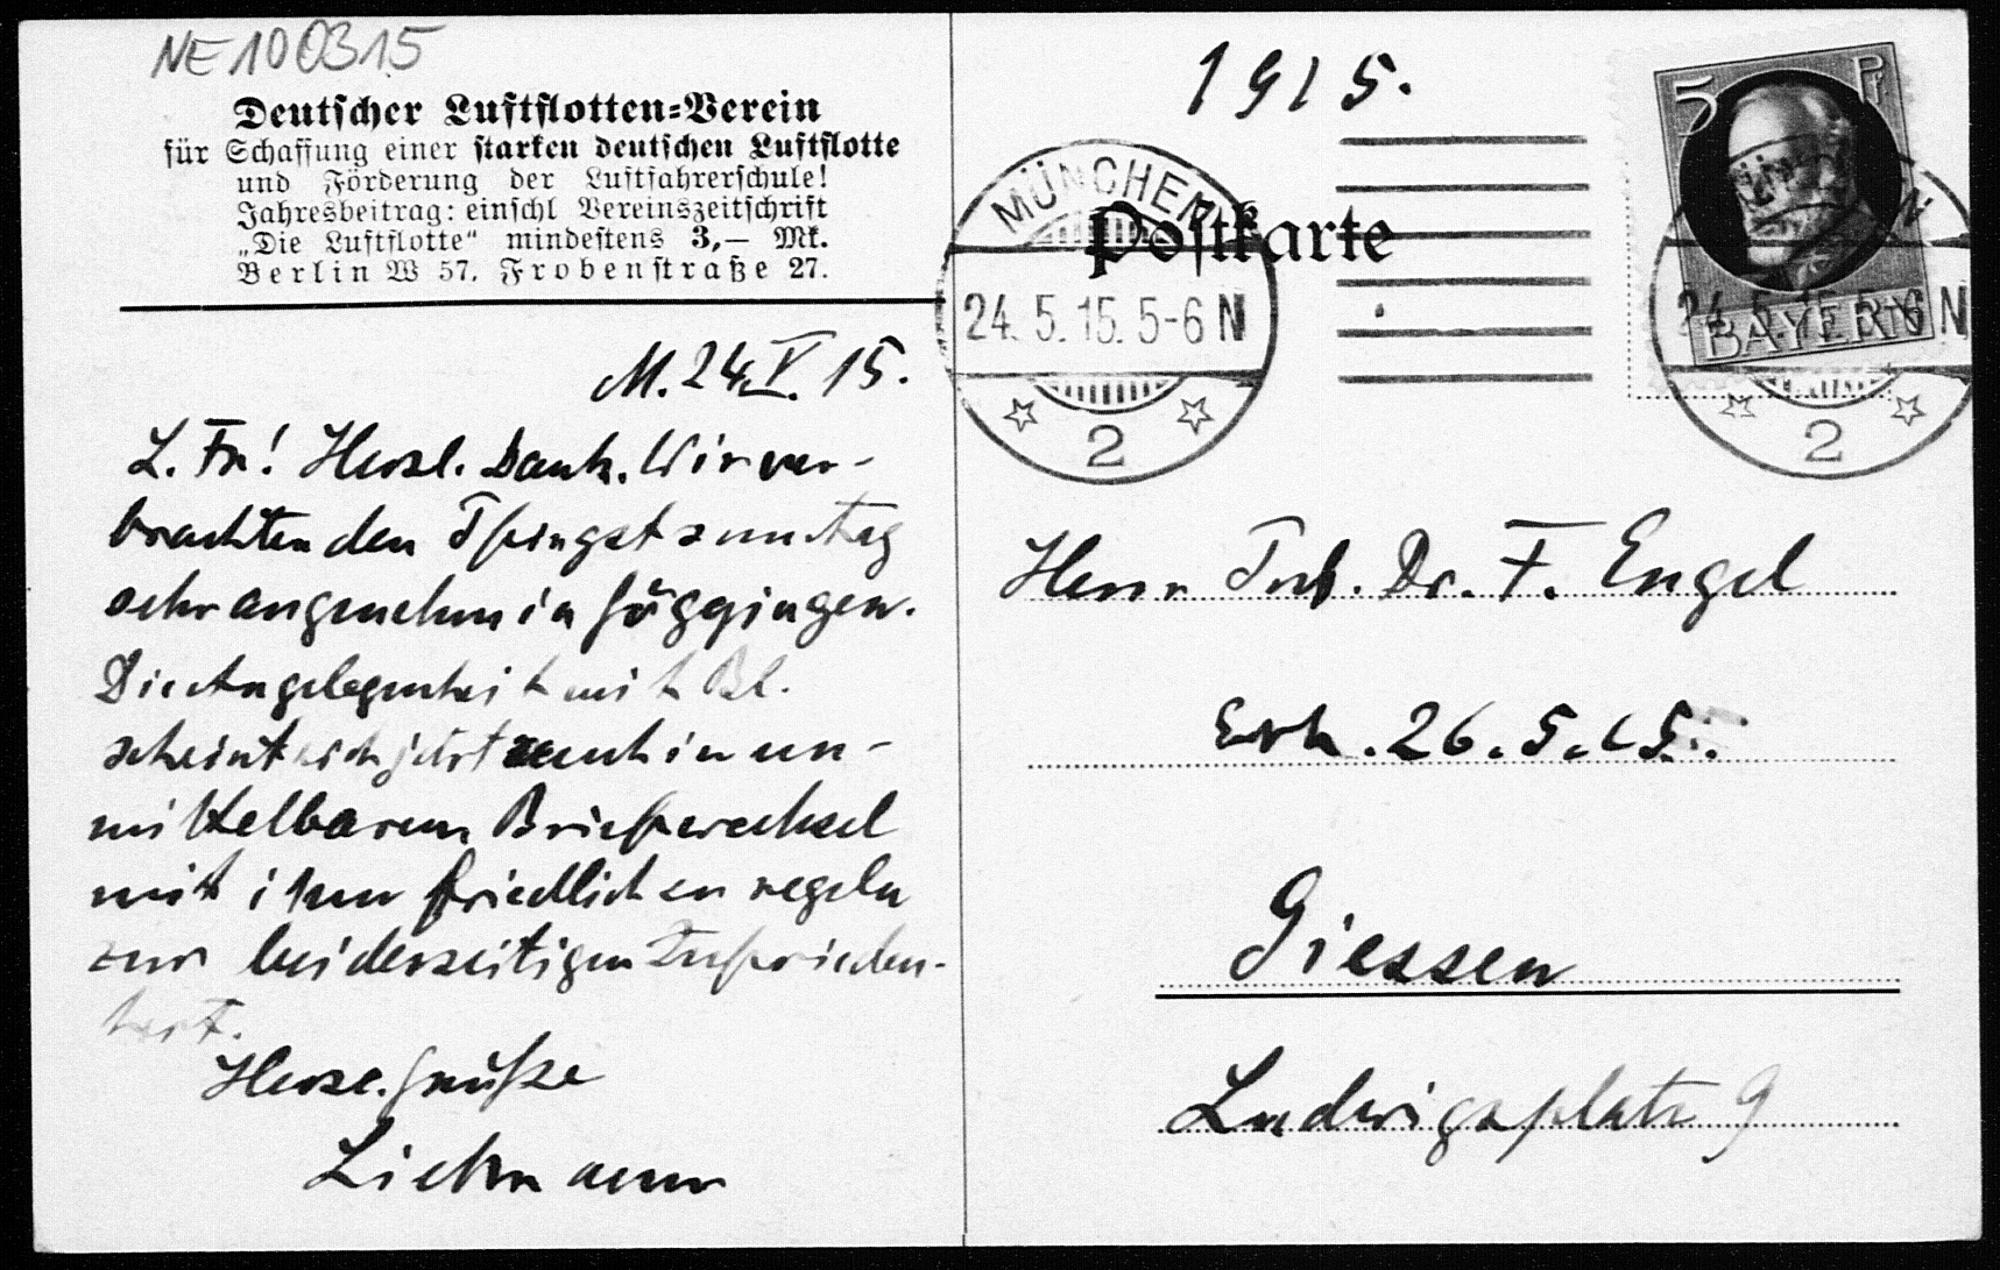 NE 100315
Deutscher Luftflotten-Verein
für Schaffung einer starken deutschen Luftflotte
und Förderung der Luftfahrerschule!
Jahresbeitrag: einschl Vereinszeitschrift
„Die Luftflotte“ mindestens 3,— Mk.
Berlin W 57, Frobenstraße 27.
M. 24.V. 15.
L. Fr! Herzl. Dank. Wir ver-
brachten den Pfingstsonntag
sehr angenehm in Göggingen.
Die Angelegenheit mit Bl.
scheint sich jetzt auch in un-
mittelbarem Briefwechsel
mit ihm friedlich zu regeln
zur beiderseitigen Zufrieden-
heit.
Herzl. Grüße
Liebmann
1915.
Postkarte
MÜNCHEN
24. 5. 15. 5-6 N
2
5 Pf
BAYERN
MÜNCHEN
24. 5. 15. 5-6 N
2
Herrn Prof. Dr. F. Engel
Erh. 26.5.15.
Giessen
Ludwigsplatz 9